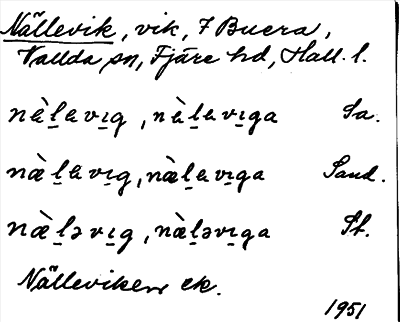 Nällevik, vik, 7 Buera,
Vallda sn, Fjäre hd, Hall. l.
nèl̠avi̠g, nèl̠avi̠ga Sa.
næ̀l̠avi̠g, næ̀l̠avi̠ga Sand.
næ̀l̠əvi̠g, næ̀l̠əvi̠ga St.
Nälleviken ek.
1951